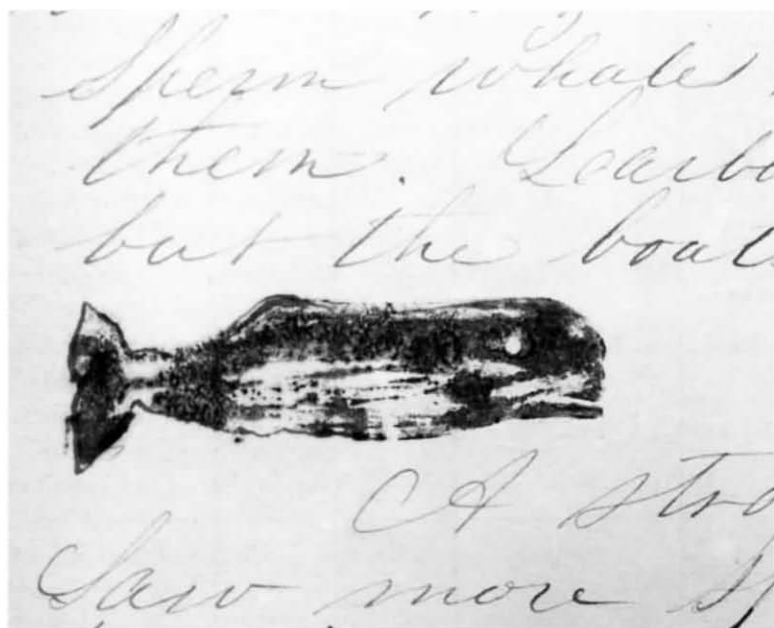 Sperm whale
them. Learbo
but the boat
A stro
Saw more S